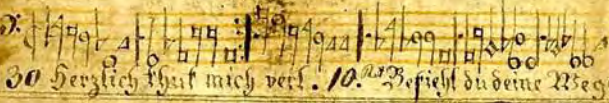 30 Herzlich thut mich verl. 10. Befiehl du deine Weg